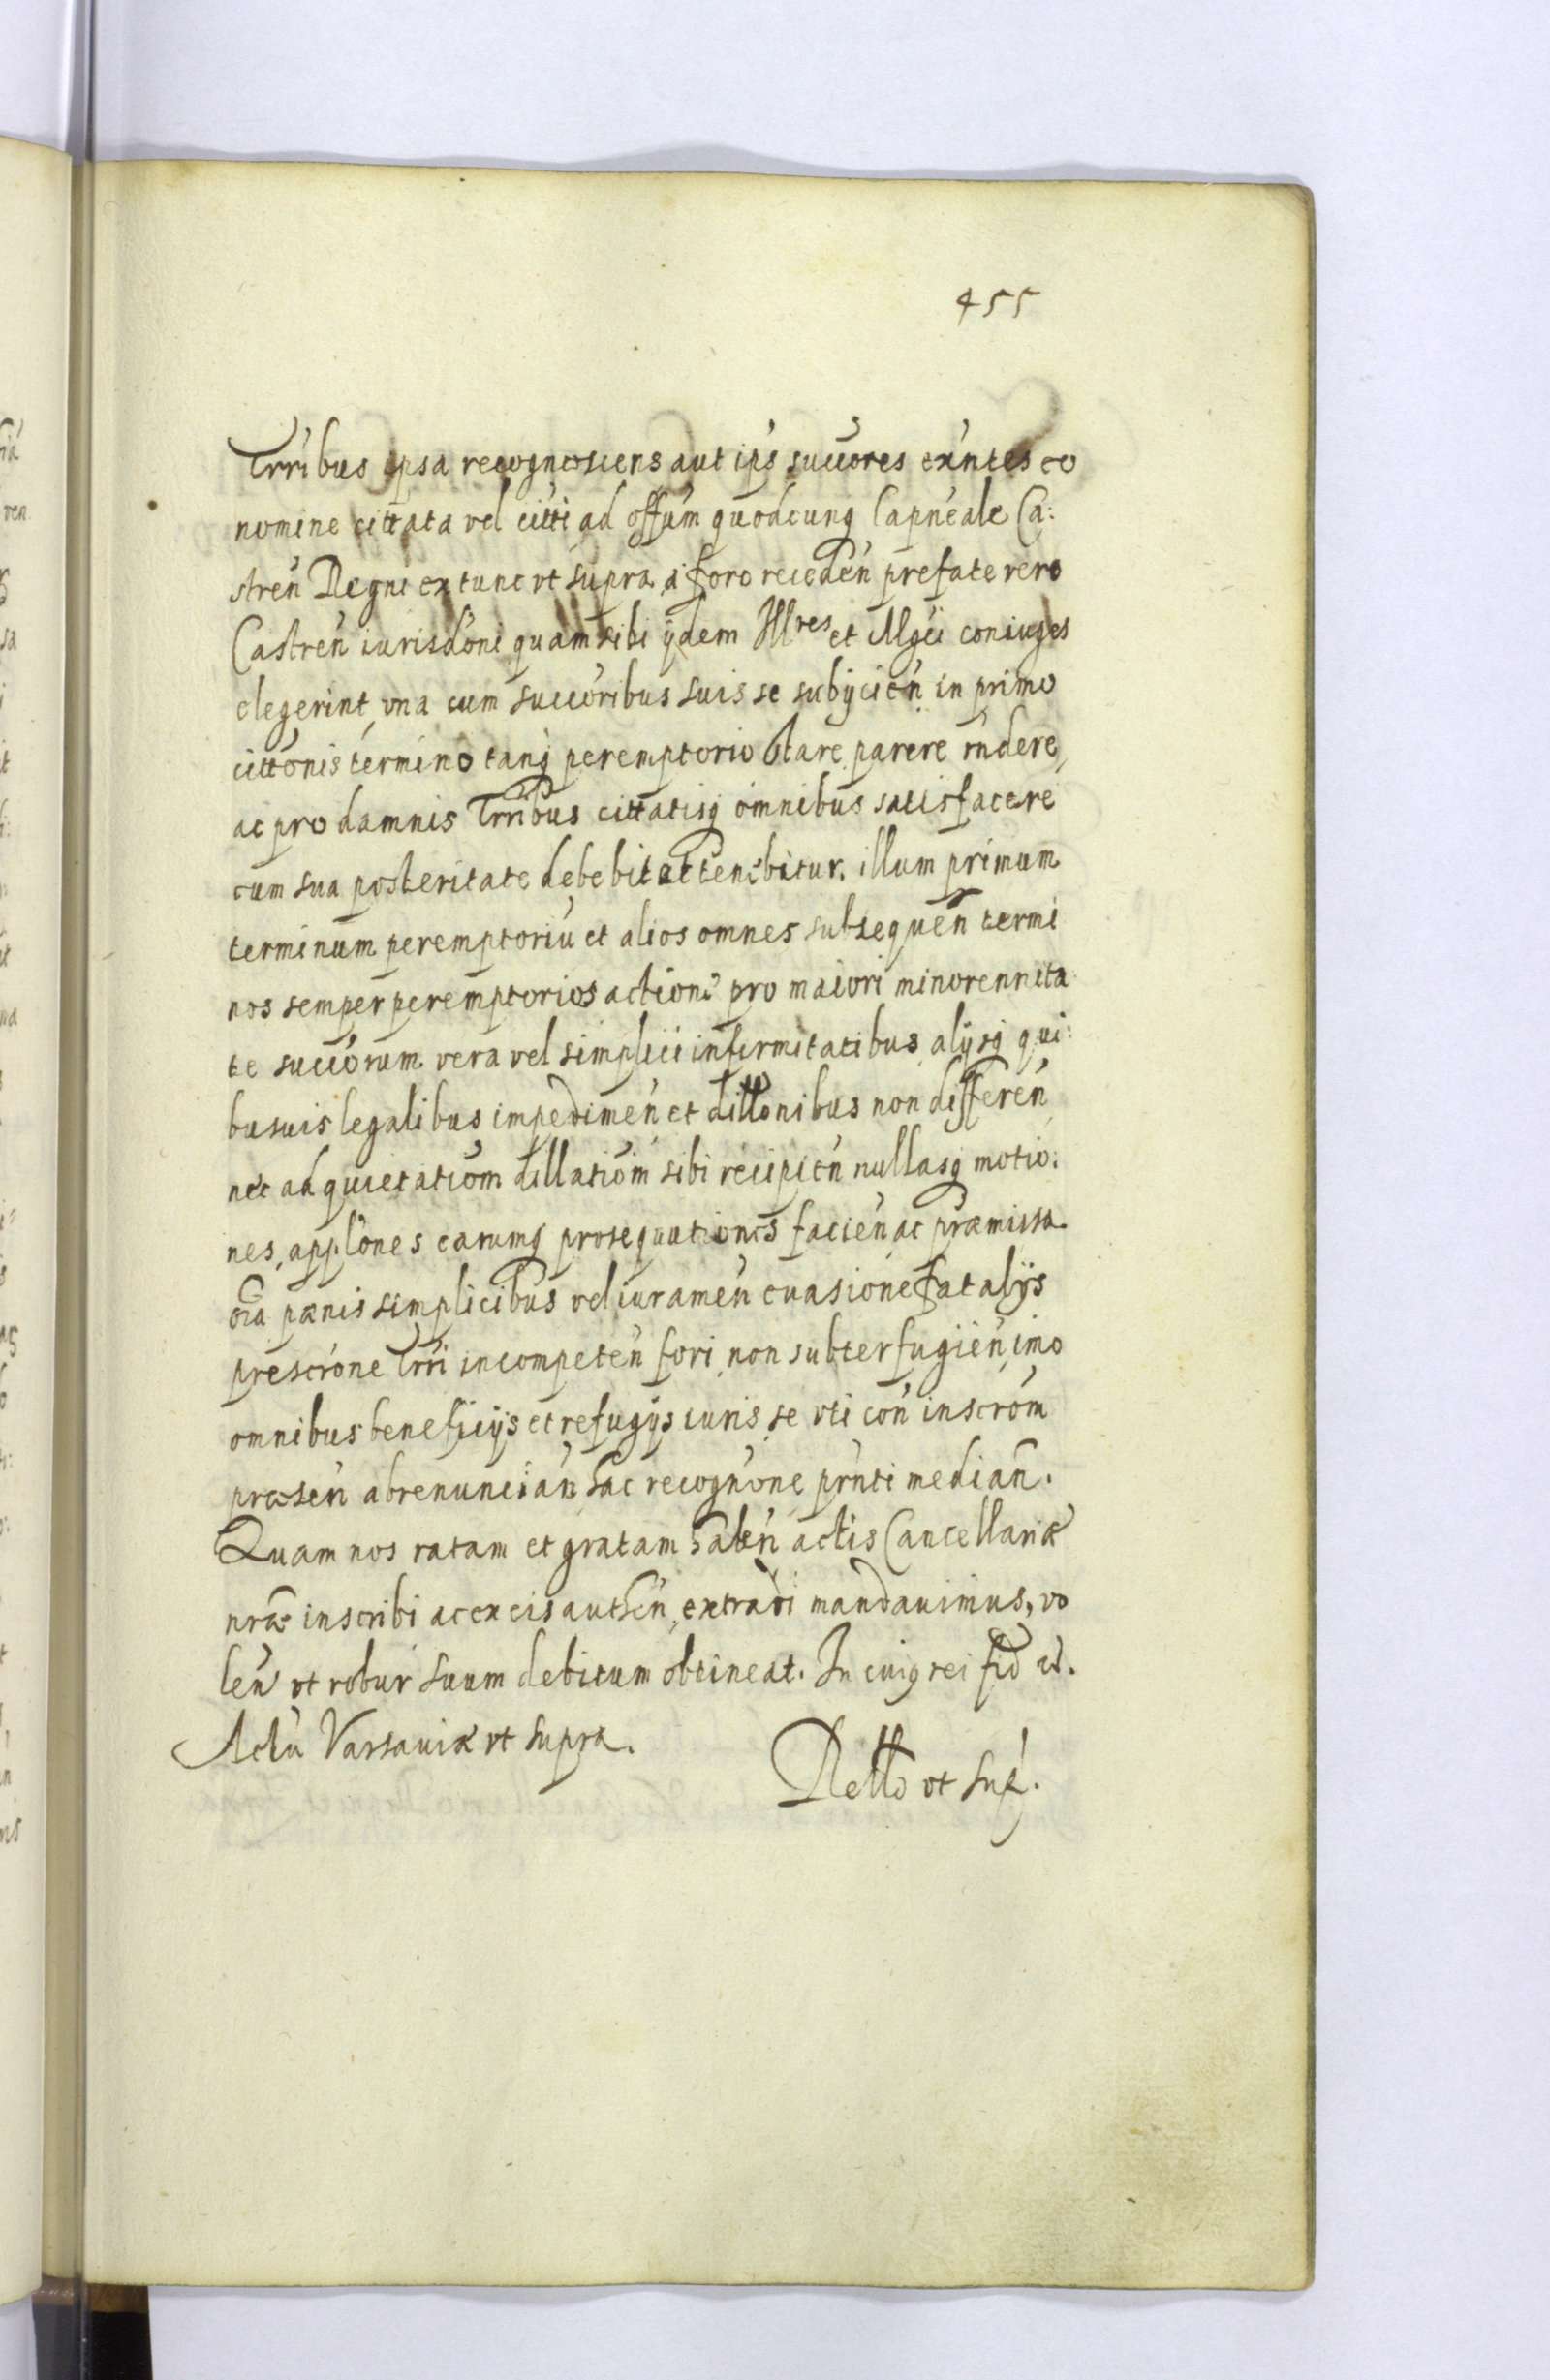 455
Trribus ipsa recognoscens aut ips succores exntes eo
nomine cittata vel citti ad offum quodcunq Capneale Ca:
stren Regni extunc vt supra, a foro receden prefate vero
Castren iurisdoni quam sibi ijdem Illres et Mgci coniuges
elegerint, vna cum succoribus suis se subijcien in primo
cittonis termino tanq peremptorio stare parere rndere,
ac pro damnis Trribus cittatisq omnibus satisfacere
cum sua posteritate debebit et tenebitur. illum primum
terminum peremptoriu et alios omnes subsequen termi
nos semper peremptorios actioni pro maiori minorennita
te succorum vera vel simplici infirmitatibus alijsq qui:
busuis legalibus impedimen et dillonibus non differen
nec ad quietatiom dillatiom sibi recipien nullasq motio:
nes, applones earumq prosequutiones facien ac præmissa
oia pænis simplicibus vel iuramen euasione fatalijs
prescrone Trri incompeten fori non subterfugien, imo
omnibus beneficijs et refugijs iuris se vti con inscrom
præsen abrenuncian hac recognone prnti median.
Quam nos ratam et gratam haben actis Cancellariæ
nræ inscribi ac ex eis authen extradi mandauimus, vo
len vt robur suum debitum obtineat. In cuiq rei fid etc.
Actu Varsauiæ vt supra.
Rello vt sup.